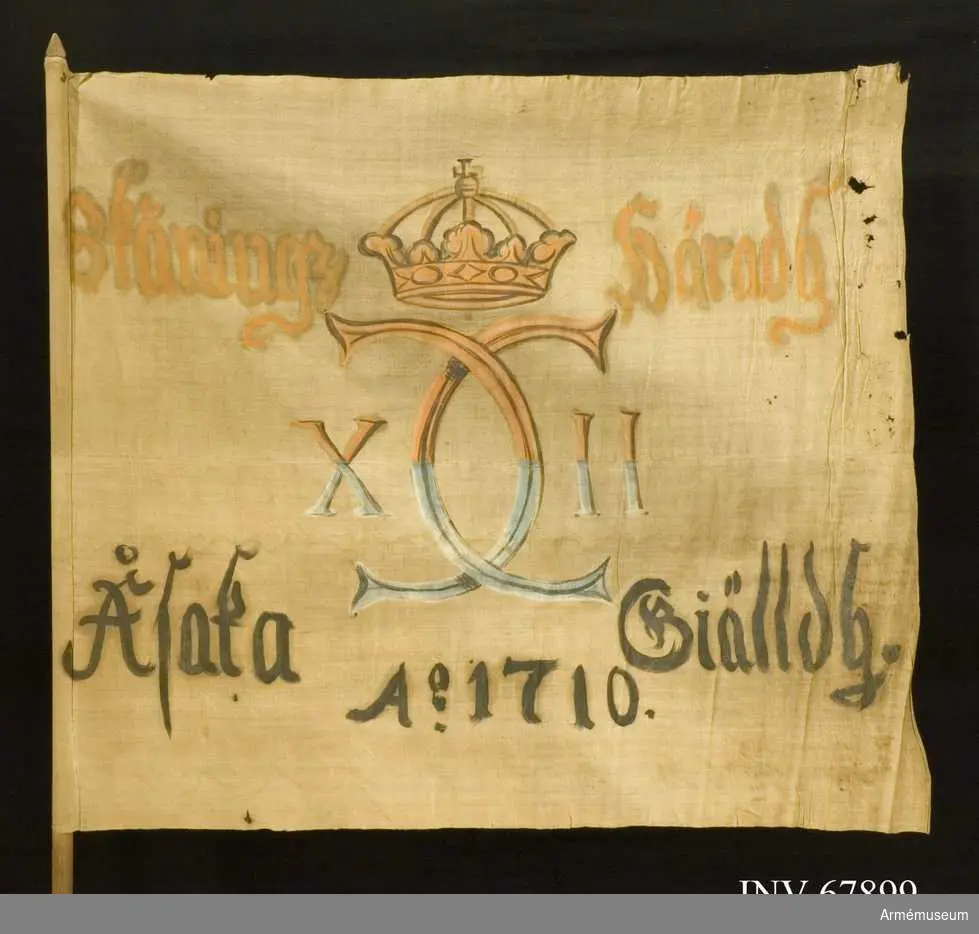 Skånings Häradh
X II
Åsaka Giälldh.
Ao: 1710.
INV 67899
Armémuseum